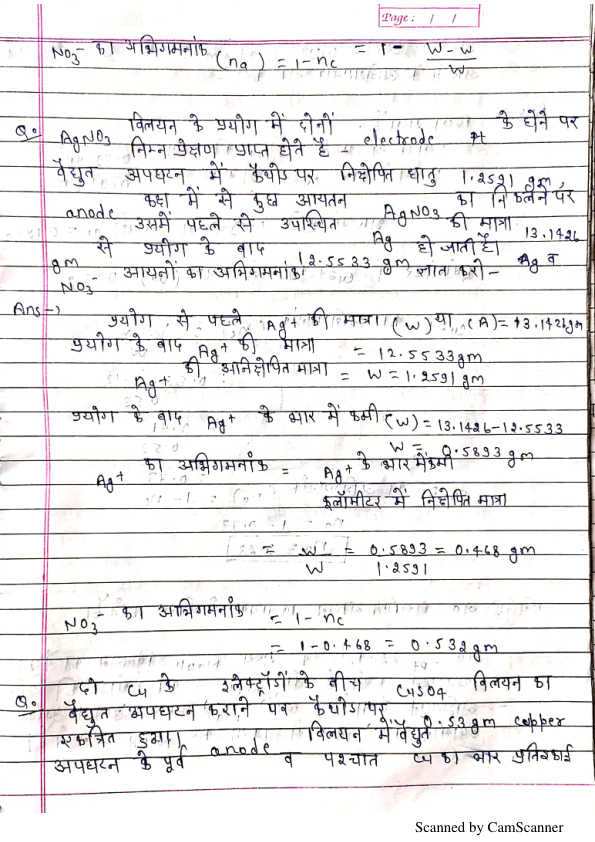 Page: / /
NO3⁻ का अभिगमनांक (na) = 1-nc = 1- W-w / W
Q. AgNO3 विलयन के प्रयोग में दोनों electrode Pt के होने पर
निम्न प्रेक्षण प्राप्त होते है -
वैद्युत अपघटन में कैथोड पर निक्षेपित धातु 1.2591 gm,
anode कक्ष में से कुछ आयतन का निकलने पर
उसमें पहले से उपस्थित AgNO3 की मात्रा 13.1426
gm से प्रयोग के बाद 12.5533 gm Ag हो जाती है। Ag व
NO3⁻ आयनों का अभिगमनांक ज्ञात करो-
Ans→
प्रयोग से पहले Ag+ की मात्रा (W) या (A) = 13.1426gm
प्रयोग के बाद Ag+ की मात्रा = 12.5533gm
Ag+ की अनिक्षेपित मात्रा = W = 1.2591 gm
प्रयोग के बाद Ag+ के भार में कमी (W) = 13.1426-12.5533
W = 0.5893 gm
Ag+ का अभिगमनांक = Ag+ के भार में कमी
कूलॉमीटर में निक्षेपित मात्रा
= W / W = 0.5893 / 1.2591 = 0.468 gm
NO3⁻ का अभिगमनांक = 1-nc
= 1-0.468 = 0.532gm
Q. दो Cu के इलेक्ट्रॉडों के बीच CuSO4 विलयन का
वैद्युत अपघटन कराने पर कैथोड पर 0.53gm copper
एकत्रित हुआ। विलयन में वैद्युत
अपघटन के पूर्व anode व पश्चात Cu का भार प्रतिइकाई
Scanned by CamScanner